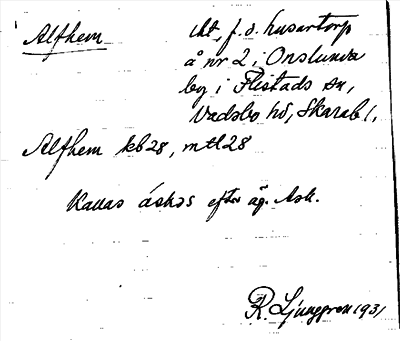 Alfhem lht, f. d. husartorp
å nr 2 i Onslunda
by i Flistads sn,
Vadsbo hd, Skarab l.
Alfhem kb28, mtl28
Kallas áskas efter äg. Ask.
R. Ljunggren 1931